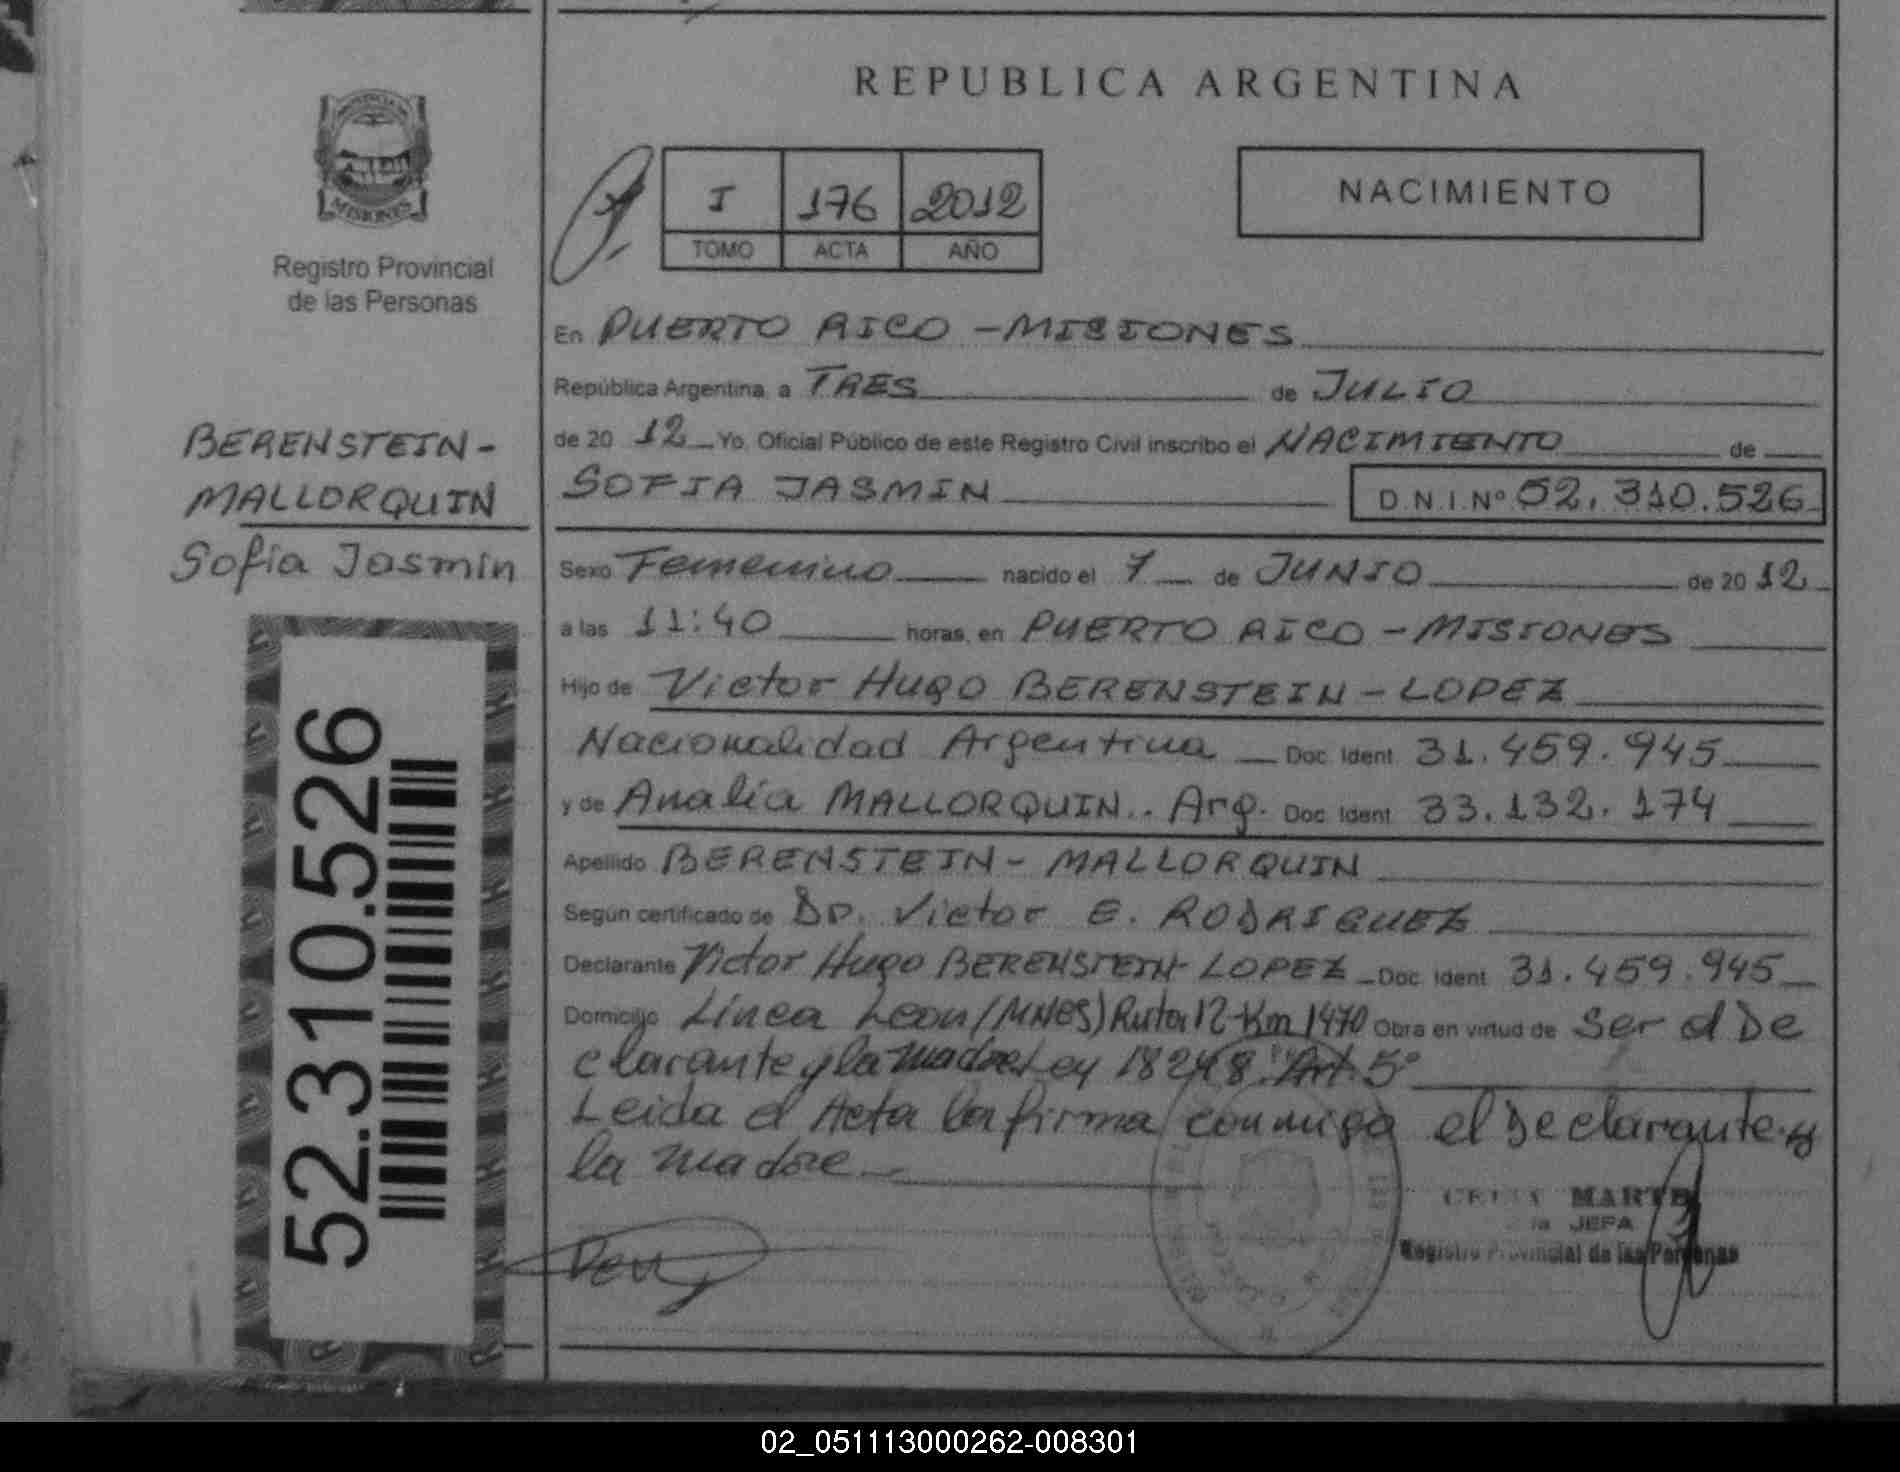 REPUBLICA ARGENTINA
MISIONES
Registro Provincial
de las Personas
I 176 2012
TOMO ACTA AÑO
NACIMIENTO
En PUERTO RICO - MISIONES
República Argentina, a TRES de JULIO
de 20 12 Yo, Oficial Público de este Registro Civil inscribo el NACIMIENTO de
SOFIA JASMIN D.N.I.Nº 52.310.526
BERENSTEIN-
MALLORQUIN
Sofia Jasmin
52.310.526
Sexo Femenino nacido el 7 de JUNIO de 20 12
a las 11:40 horas, en PUERTO RICO - MISIONES
Hijo de Victor HUGO BERENSTEIN - LOPEZ
Nacionalidad Argentina Doc. Ident. 31.459.945
y de Analia MALLORQUIN.. Arg. Doc. Ident. 33.132.174
Apellido BERENSTEIN - MALLORQUIN
Según certificado de Dr. Victor E. RODRIGUEZ
Declarante Victor Hugo BERENSTEIN-LOPEZ Doc. Ident. 31.459.945
Domicilio Linea Leon (MNES) Ruta 12-Km 1470 Obra en virtud de Ser el De
clarante y la madre Ley 18248 Art. 5º
Leida el Acta la firma conmigo el Declarante y
la madre
MARTE
JEFA
Registro Provincial de las Personas
02_051113000262-008301